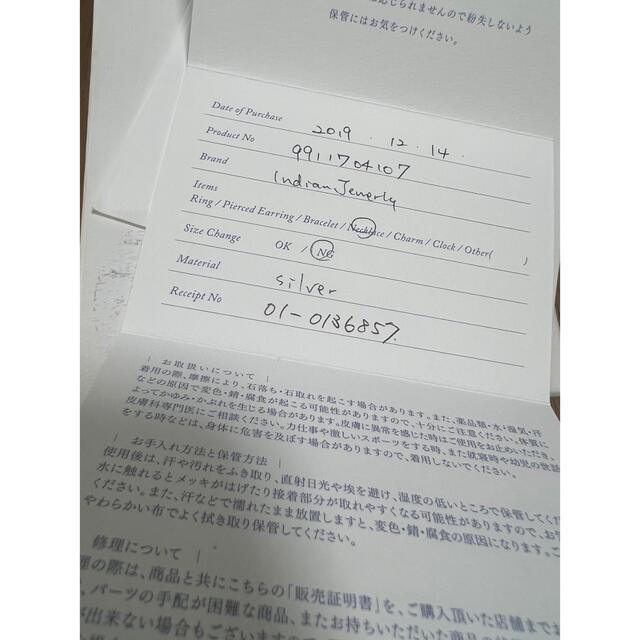 応じられませんので紛失しないよう
保管にはお気をつけください。
Date of Purchase 2019 . 12 . 14 .
Product No 9911704107
Brand Indian Jewerly
Items
Ring / Pierced Earring / Bracelet / Necklace / Charm / Clock / Other( )
Size Change OK / NG
Material silver
Receipt No 01-0136857.
| お取扱いについて |
着用の際、摩擦により、石落ち・石取れを起こす場合があります。また、薬品類・水・温気・汗
などの原因で変色・錆・腐食が起こる可能性がありますので、十分にご注意ください。体質に
よってかゆみ・かぶれを生じる場合があります。皮膚に異常を感じた時はご使用をお止めいただき、
皮膚科専門医にご相談ください。力仕事や激しいスポーツをする時、また就寝時や幼児の世話
をする時などは、身体に危害を及ぼす場合がありますので、着用しないでください。
| お手入れ方法と保管方法 |
使用後は、汗や汚れをふき取り、直射日光や埃を避け、湿度の低いところで保管してくだ
水に触れるとメッキがはげたり接着部分が取れやすくなる可能性がありますので、お気
ください。また、汗などで濡れたまま放置しますと、変色・錆・腐食の原因になります。ご
やわらかい布でよく拭き取り保管してください。
修理について |
理の際は、商品と共にこちらの「販売証明書」を、ご購入頂いた店舗までお
、パーツの手配が困難な商品、またお持ちいただいた商品の
が出来ない場合もございますので